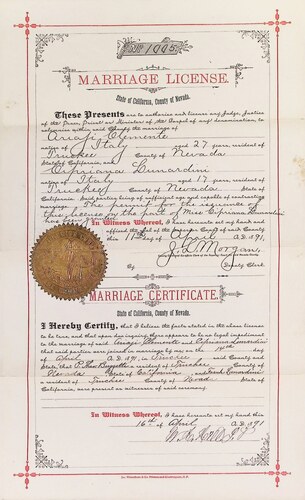 No. 1005
MARRIAGE LICENSE.
State of California, County of Nevada.
These Presents are to authorize and license any Judge, Justice
of the Peace, Priest or Minister of the Gospel of any denomination, to
solemnize within said County the marriage of
Clemente
native of Italy aged 27 years, resident of
Truckee County of Nevada
State of California, and
Cipriana Lunardini
native of Italy aged 17 years, resident of
Truckee County of Nevada
State of California. Said parties being of sufficient age and capable of contracting
marriage. The for the issuance of
this license on the part of Miss Cipriana Lunardini
has been
In Witness Whereof, I have hereunto set my hand and
affixed the Seal of the Superior Court of said County
this 11th day of April A.D. 1891,
J. L. Morgan,
By Deputy Clerk.
MARRIAGE CERTIFICATE.
State of California, County of Nevada.
I Hereby Certify, that I believe the facts stated in the above license
to be true, and that upon due inquiry there appears to be no legal impediment
to the marriage of said Clemente and Cipriana Lunardini
that said parties were joined in marriage by me on the 14th day
of April A.D. 1891, in Truckee said County and
State; that a resident of Truckee County of
Nevada State of California and
a resident of Truckee County of Nevada State of
California, are present as witnesses of said ceremony.
In Witness Whereof, I have hereunto set my hand this
16th of April A.D. 1891